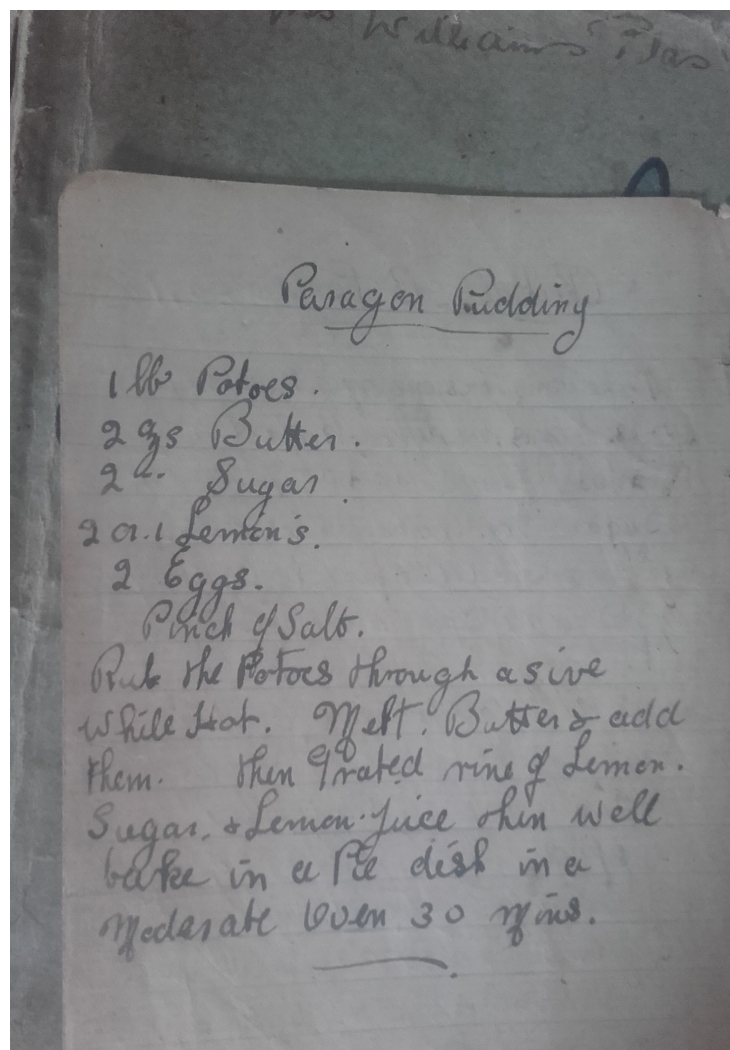 Williams Plas
Paragon Pudding
1 lb Potoes.
2 ozs Butter.
2 " Sugar.
2 or 1 Lemon's.
2 Eggs.
Pinch of Salt.
Rub the Potoes through a sive
while Hot. Melt. Butter & add
them. then Grated rine of Lemon.
Sugar. & Lemon. juice then well
bake in a Pie dish in a
Moderate Oven 30 Mins.